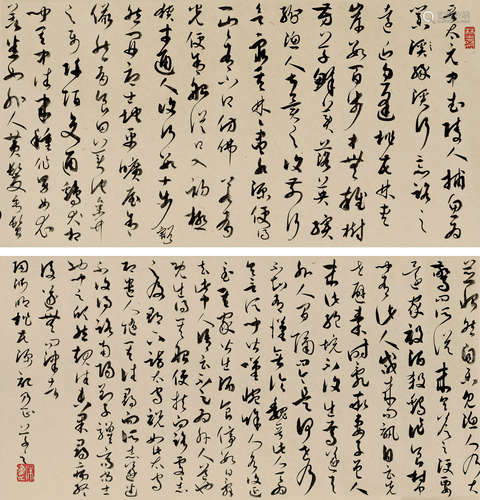 晉太元中武陵人捕魚為
業緣溪行忘路之
遠近忽逢桃花林夾
岸數百步中無雜樹
芳草鮮美落英繽
紛漁人甚異之復前行
欲窮其林林盡水源便得
一山山有小口仿佛若有
光便舍船從口入初極
狹才通人復行數十步豁
然開朗土地平曠屋舍
儼然有良田美池桑竹
之屬阡陌交通雞犬相
聞其中往來種作男女衣
著悉如外人黃髮垂髫
並怡然自樂見漁人乃大
驚問所從來具答之便要
還家設酒殺雞作食村
中聞有此人咸來問訊自云先
世避秦時亂率妻子邑人
來此絕境不復出焉遂與
外人間隔問今是何世乃
不知有漢無論魏晉此人一一為
具言所聞皆嘆惋餘人各復延
至其家皆出酒食停數日辭
去此中人語云不足為外人道也
既出得其船便扶向路處處志
之及郡下詣太守說如此太守
即遣人隨其往尋向所志遂迷
不復得路南陽劉子驥高尚士
也聞之欣然規往未果尋病終
後遂無問津者
陶淵明桃花源記